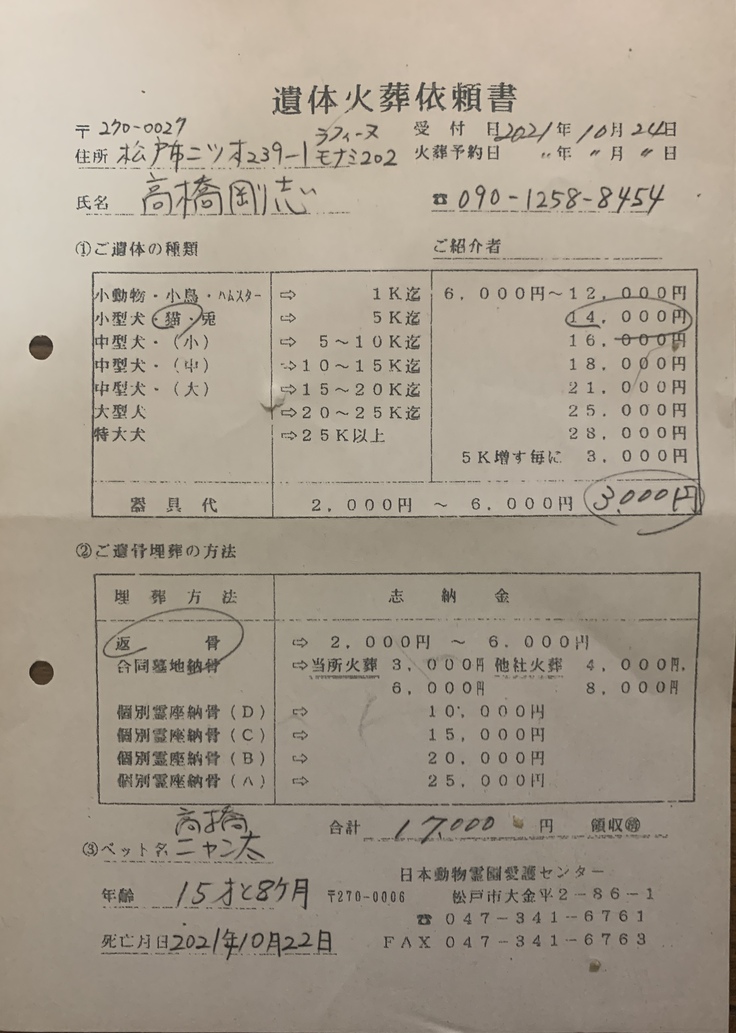 遺体火葬依頼書
〒270-0027 ラフィーヌ 受付日2021年10月24日
住所 松戸市二ツ木239-1 モナミ202 火葬予約日 〃年〃月〃日
氏名 高橋剛志 ☎090-1258-8454
①ご遺体の種類 ご紹介者
小動物・小鳥・ハムスター ⇨ 1K迄 6,000円~12,000円
小型犬・猫・兎 ⇨ 5K迄 14,000円
中型犬・(小) ⇨ 5~10K迄 16,000円
中型犬・(中) ⇨10~15K迄 18,000円
中型犬・(大) ⇨15~20K迄 21,000円
大型犬 ⇨20~25K迄 25,000円
特大犬 ⇨25K以上 28,000円
5K増す毎に 3,000円
器具代 2,000円 ~ 6,000円 3,000円
②ご遺骨埋葬の方法
埋葬方法 志納金
返骨 ⇨ 2,000円 ~ 6,000円
合同墓地納骨 ⇨当所火葬 3,000円 他社火葬 4,000円.
6,000円 8,000円
個別霊座納骨(D) ⇨ 10,000円
個別霊座納骨(C) ⇨ 15,000円
個別霊座納骨(B) ⇨ 20,000円
個別霊座納骨(A) ⇨ 25,000円
合計 17,000 円 領収㊞
高橋
③ペット名 ニャン太
日本動物霊園愛護センター
年齢 15才と8ケ月 〒270-0006 松戸市大金平2-86-1
☎047-341-6761
死亡月日2021年10月22日 FAX 047-341-6763